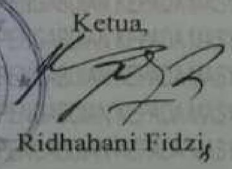 Ketua,
Ridhahani Fidzi